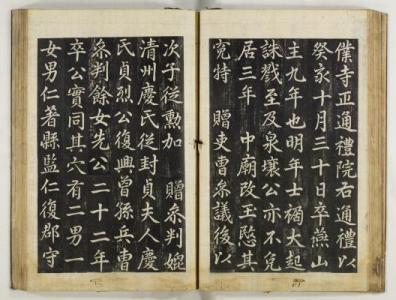 僕寺正通禮院右通禮以
癸亥十月三十日卒燕山
主九年也明年士禍大起
誅戮至及泉壤公亦不免
居三年 中廟改玉愍其
寃特 贈吏曹叅議後以
次子從勳加 贈叅判媲
清州慶氏從封貞夫人慶
氏貞烈公復興曾孫兵曹
叅判餘女先公二十二年
卒公實同其穴有二男一
女男仁著縣監仁復郡守